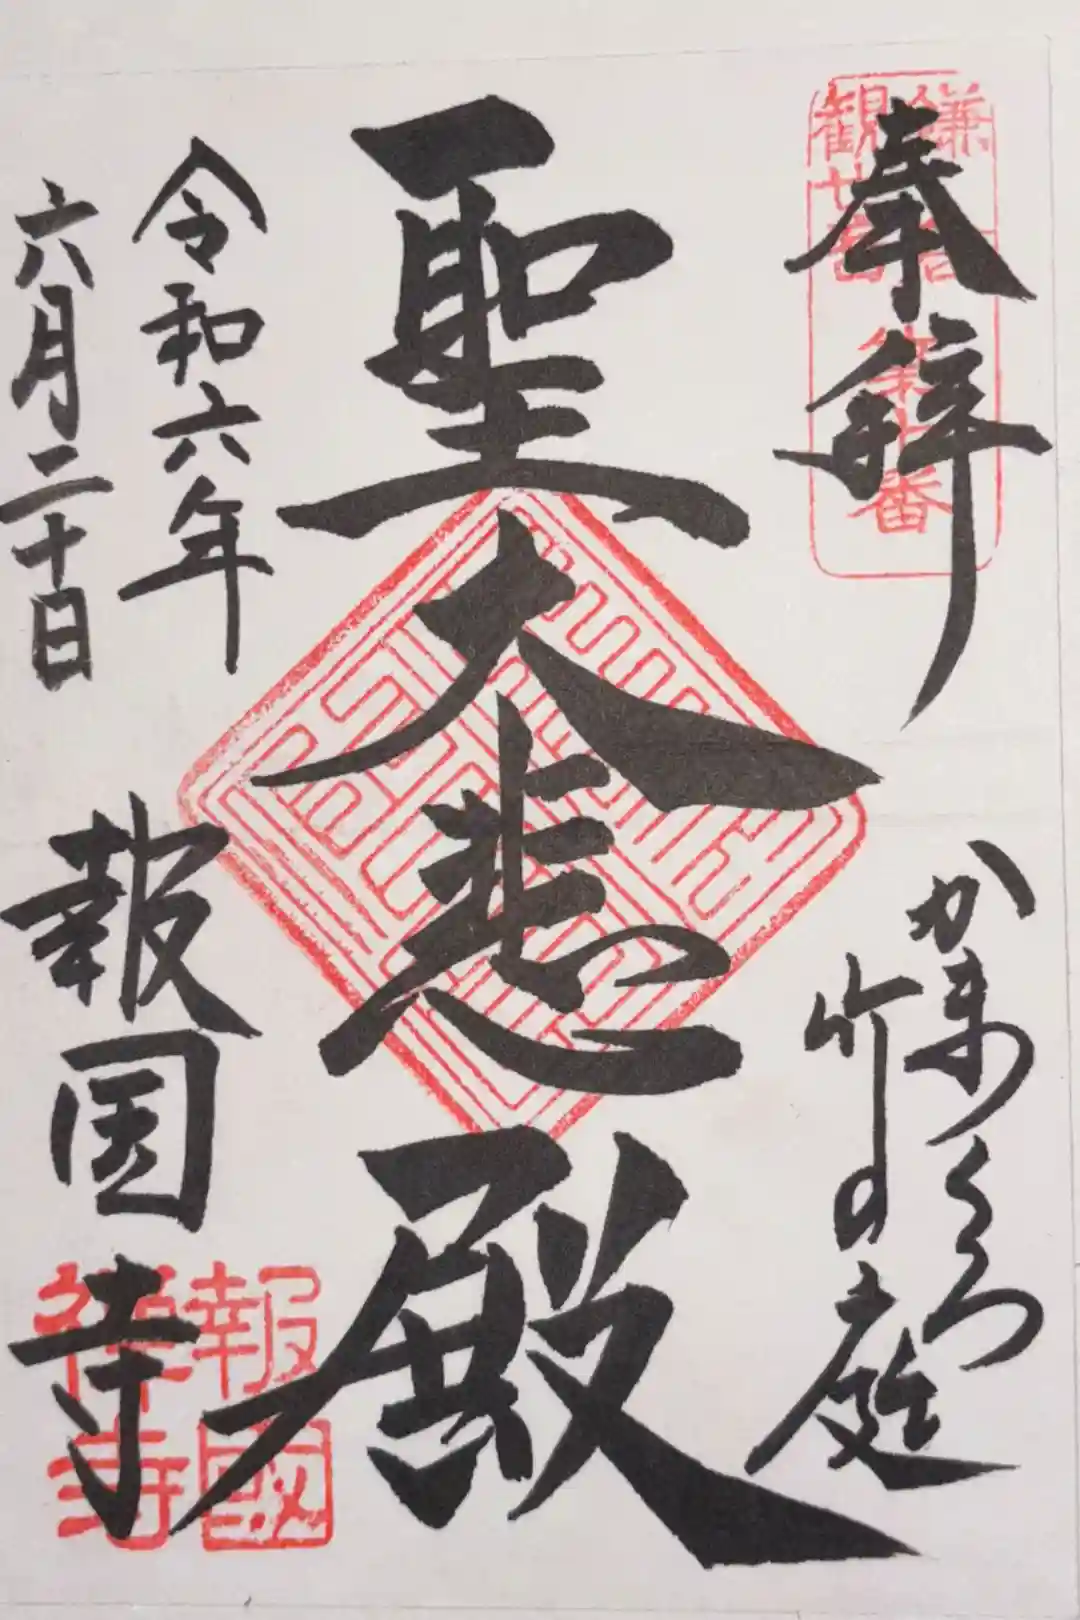 奉拝
鎌倉
観世音
第十番
かまくら
竹の庭
聖大悲殿
令和六年
六月二十日
報国寺
報國
禅寺